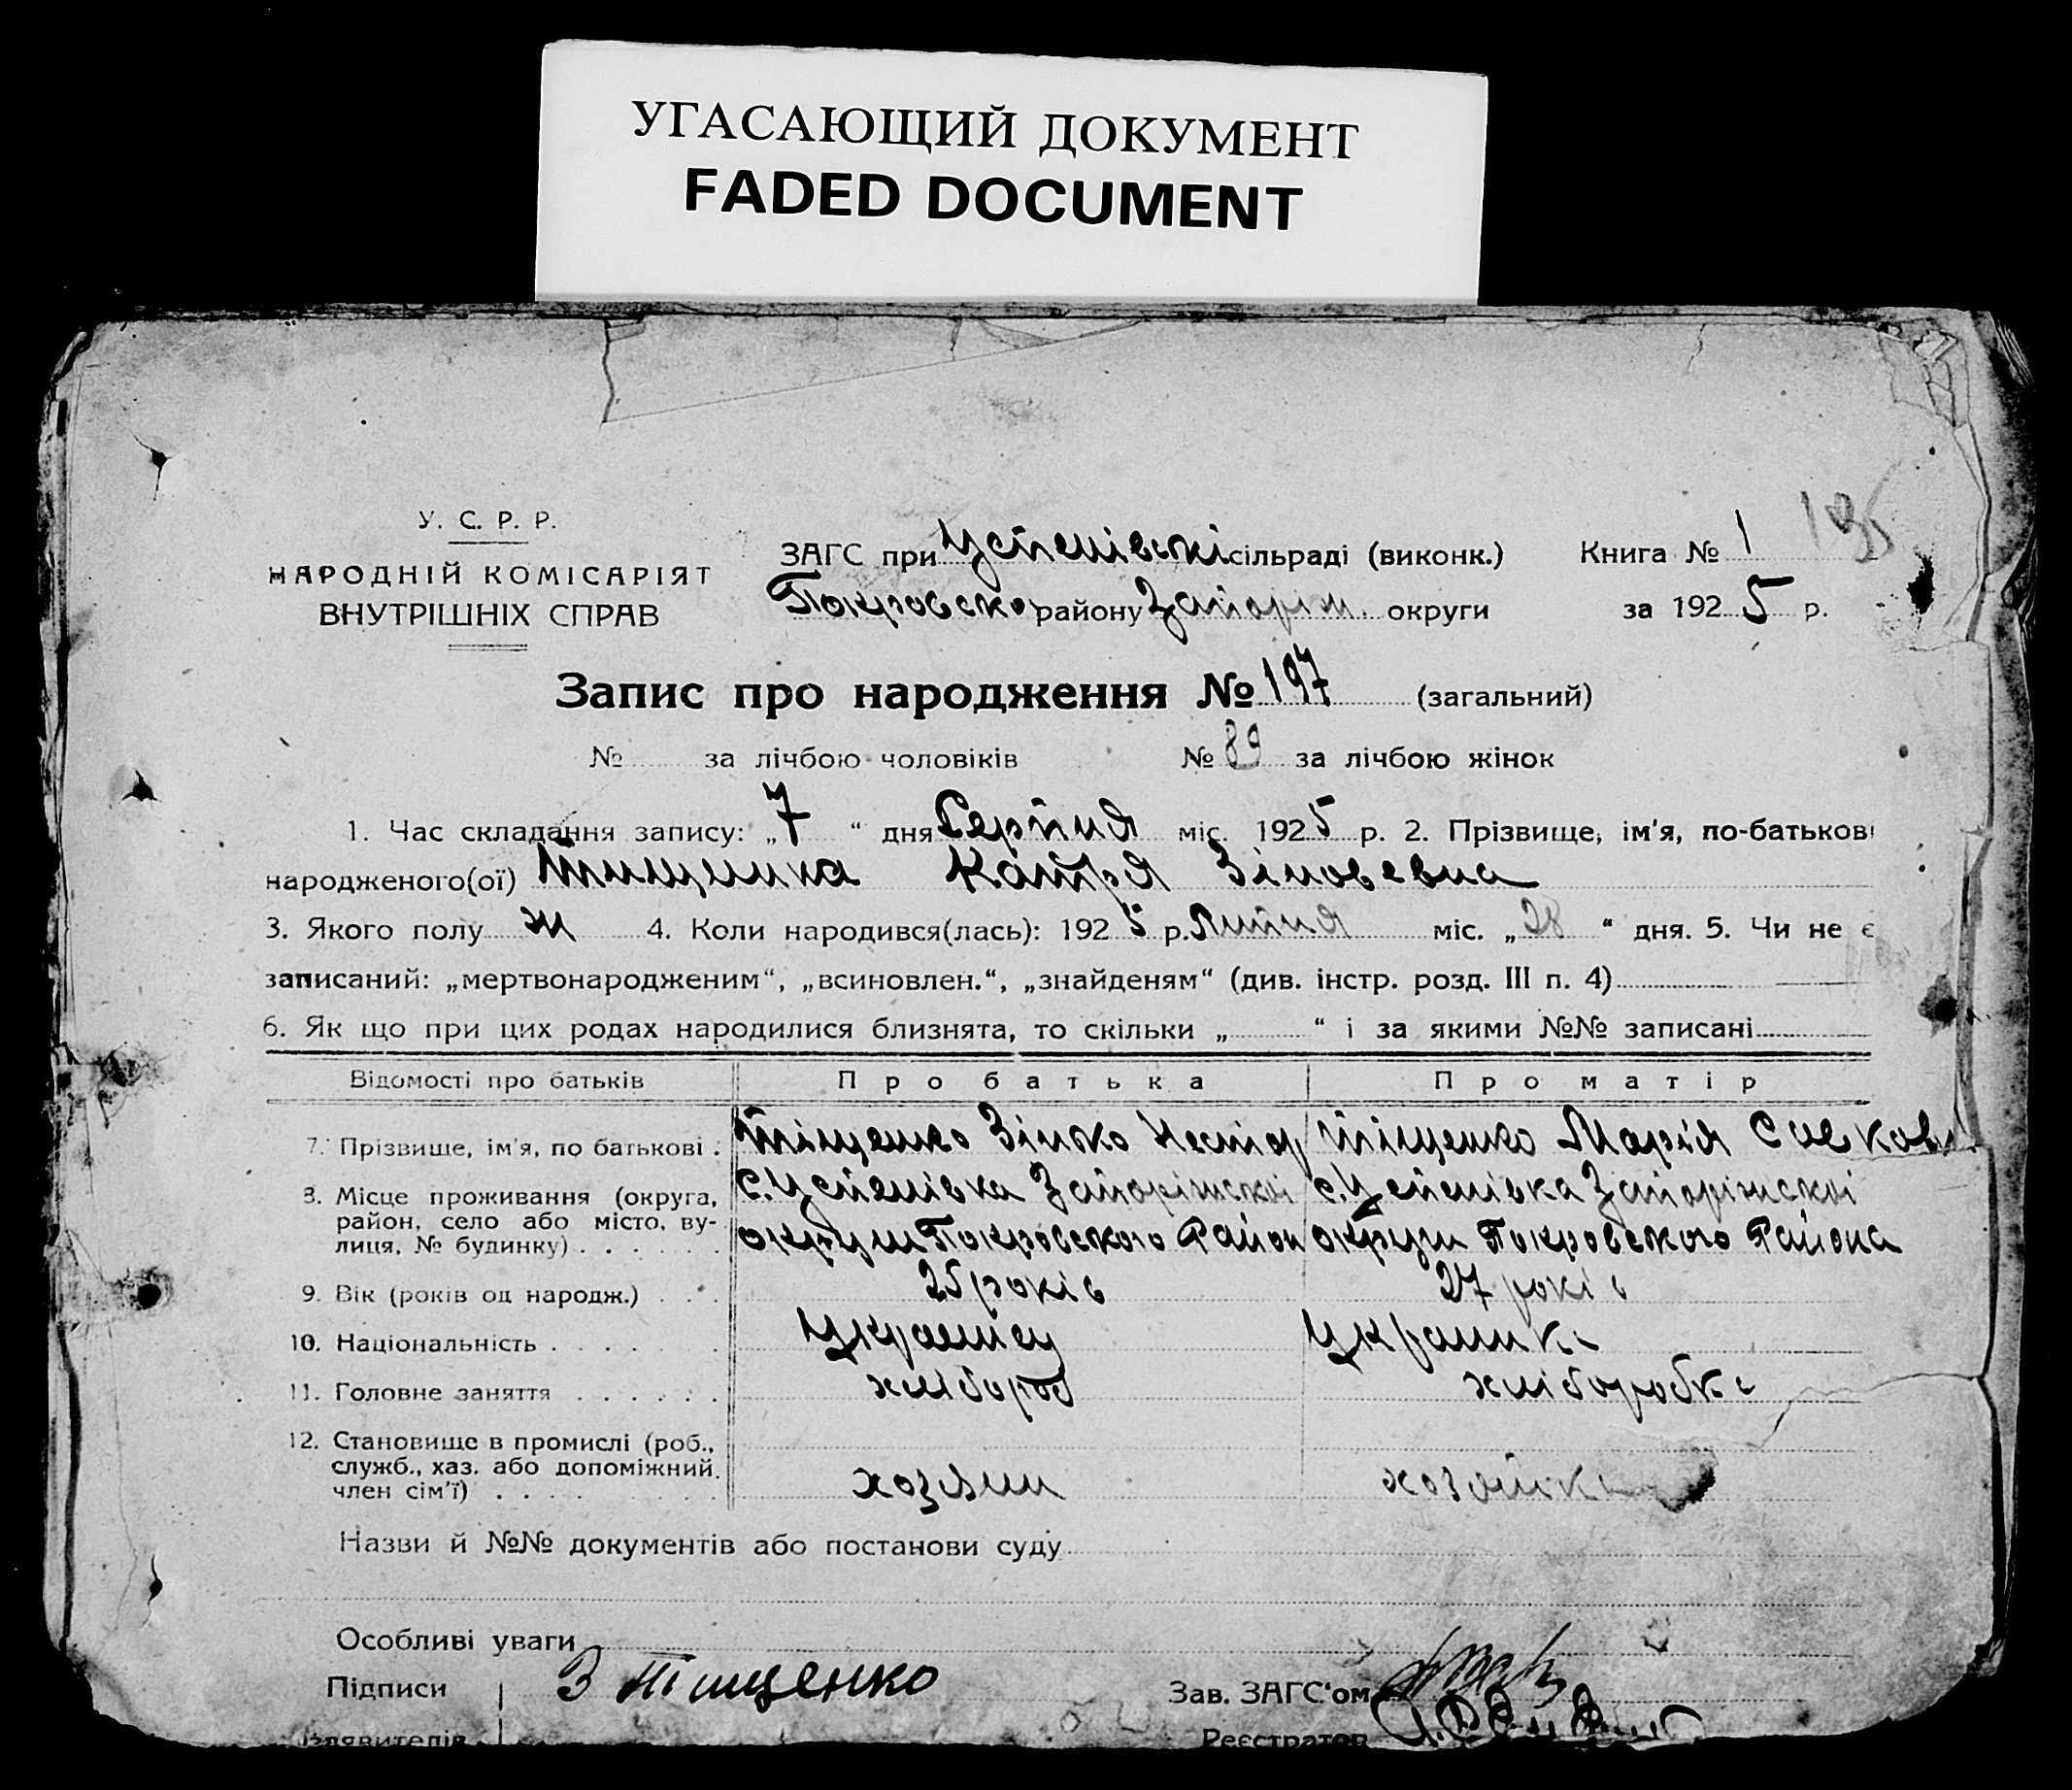 УГАСАЮЩИЙ ДОКУМЕНТ
FADED DOCUMENT
У. С. Р. Р.
НАРОДНІЙ КОМІСАРІЯТ
ВНУТРІШНІХ СПРАВ
ЗАГС при Успенівські сільраді (виконк.)
Покровсько району Запоріж. округи
Книга № 1
за 1925 р.
Запис про народження № 197 (загальний)
№ за лічбою чоловіків № 89 за лічбою жінок
1. Час складання запису: „7“ дня Серпня міс. 1925 р. 2. Прізвище, ім'я, по-батькові
народженого(ої) Тищенка Катря Зіновевна
3. Якого полу ж 4. Коли народився(лась): 1925 р. Липня міс. „28“ дня. 5. Чи не є
записаний: „мертвонародженим“, „всиновлен.“, „знайденям“ (див. інстр. розд. III п. 4)
6. Як що при цих родах народилися близнята, то скільки „ “ і за якими №№ записані
Відомості про батьків Про батька Про матір
7. Прізвище, ім'я, по батькові . Тіщенко Зінько Нестор Тіщенко Марія
8. Місце проживання (округа, с. Успенівка Запоріжскої с. Успенівка Запоріжскої
район, село або місто, ву-
лиця, № будинку) . . . . . . округи Покровського Район округи Покровського Района
9. Вік (років од народж.) . . . 25 років 27 років
10. Національність . . . . . . . Украінец Украинка
11. Головне заняття . . . . . . хлібороб хлiборобка
12. Становище в промислі (роб.,
служб., хаз. або допоміжний
член сім'ї) . . . . хозяин хозяйка
Назви й №№ документів або постанови суду
Особливі уваги
Підписи З Тищенко Зав. ЗАГС'ом
заявителів Реєстратор